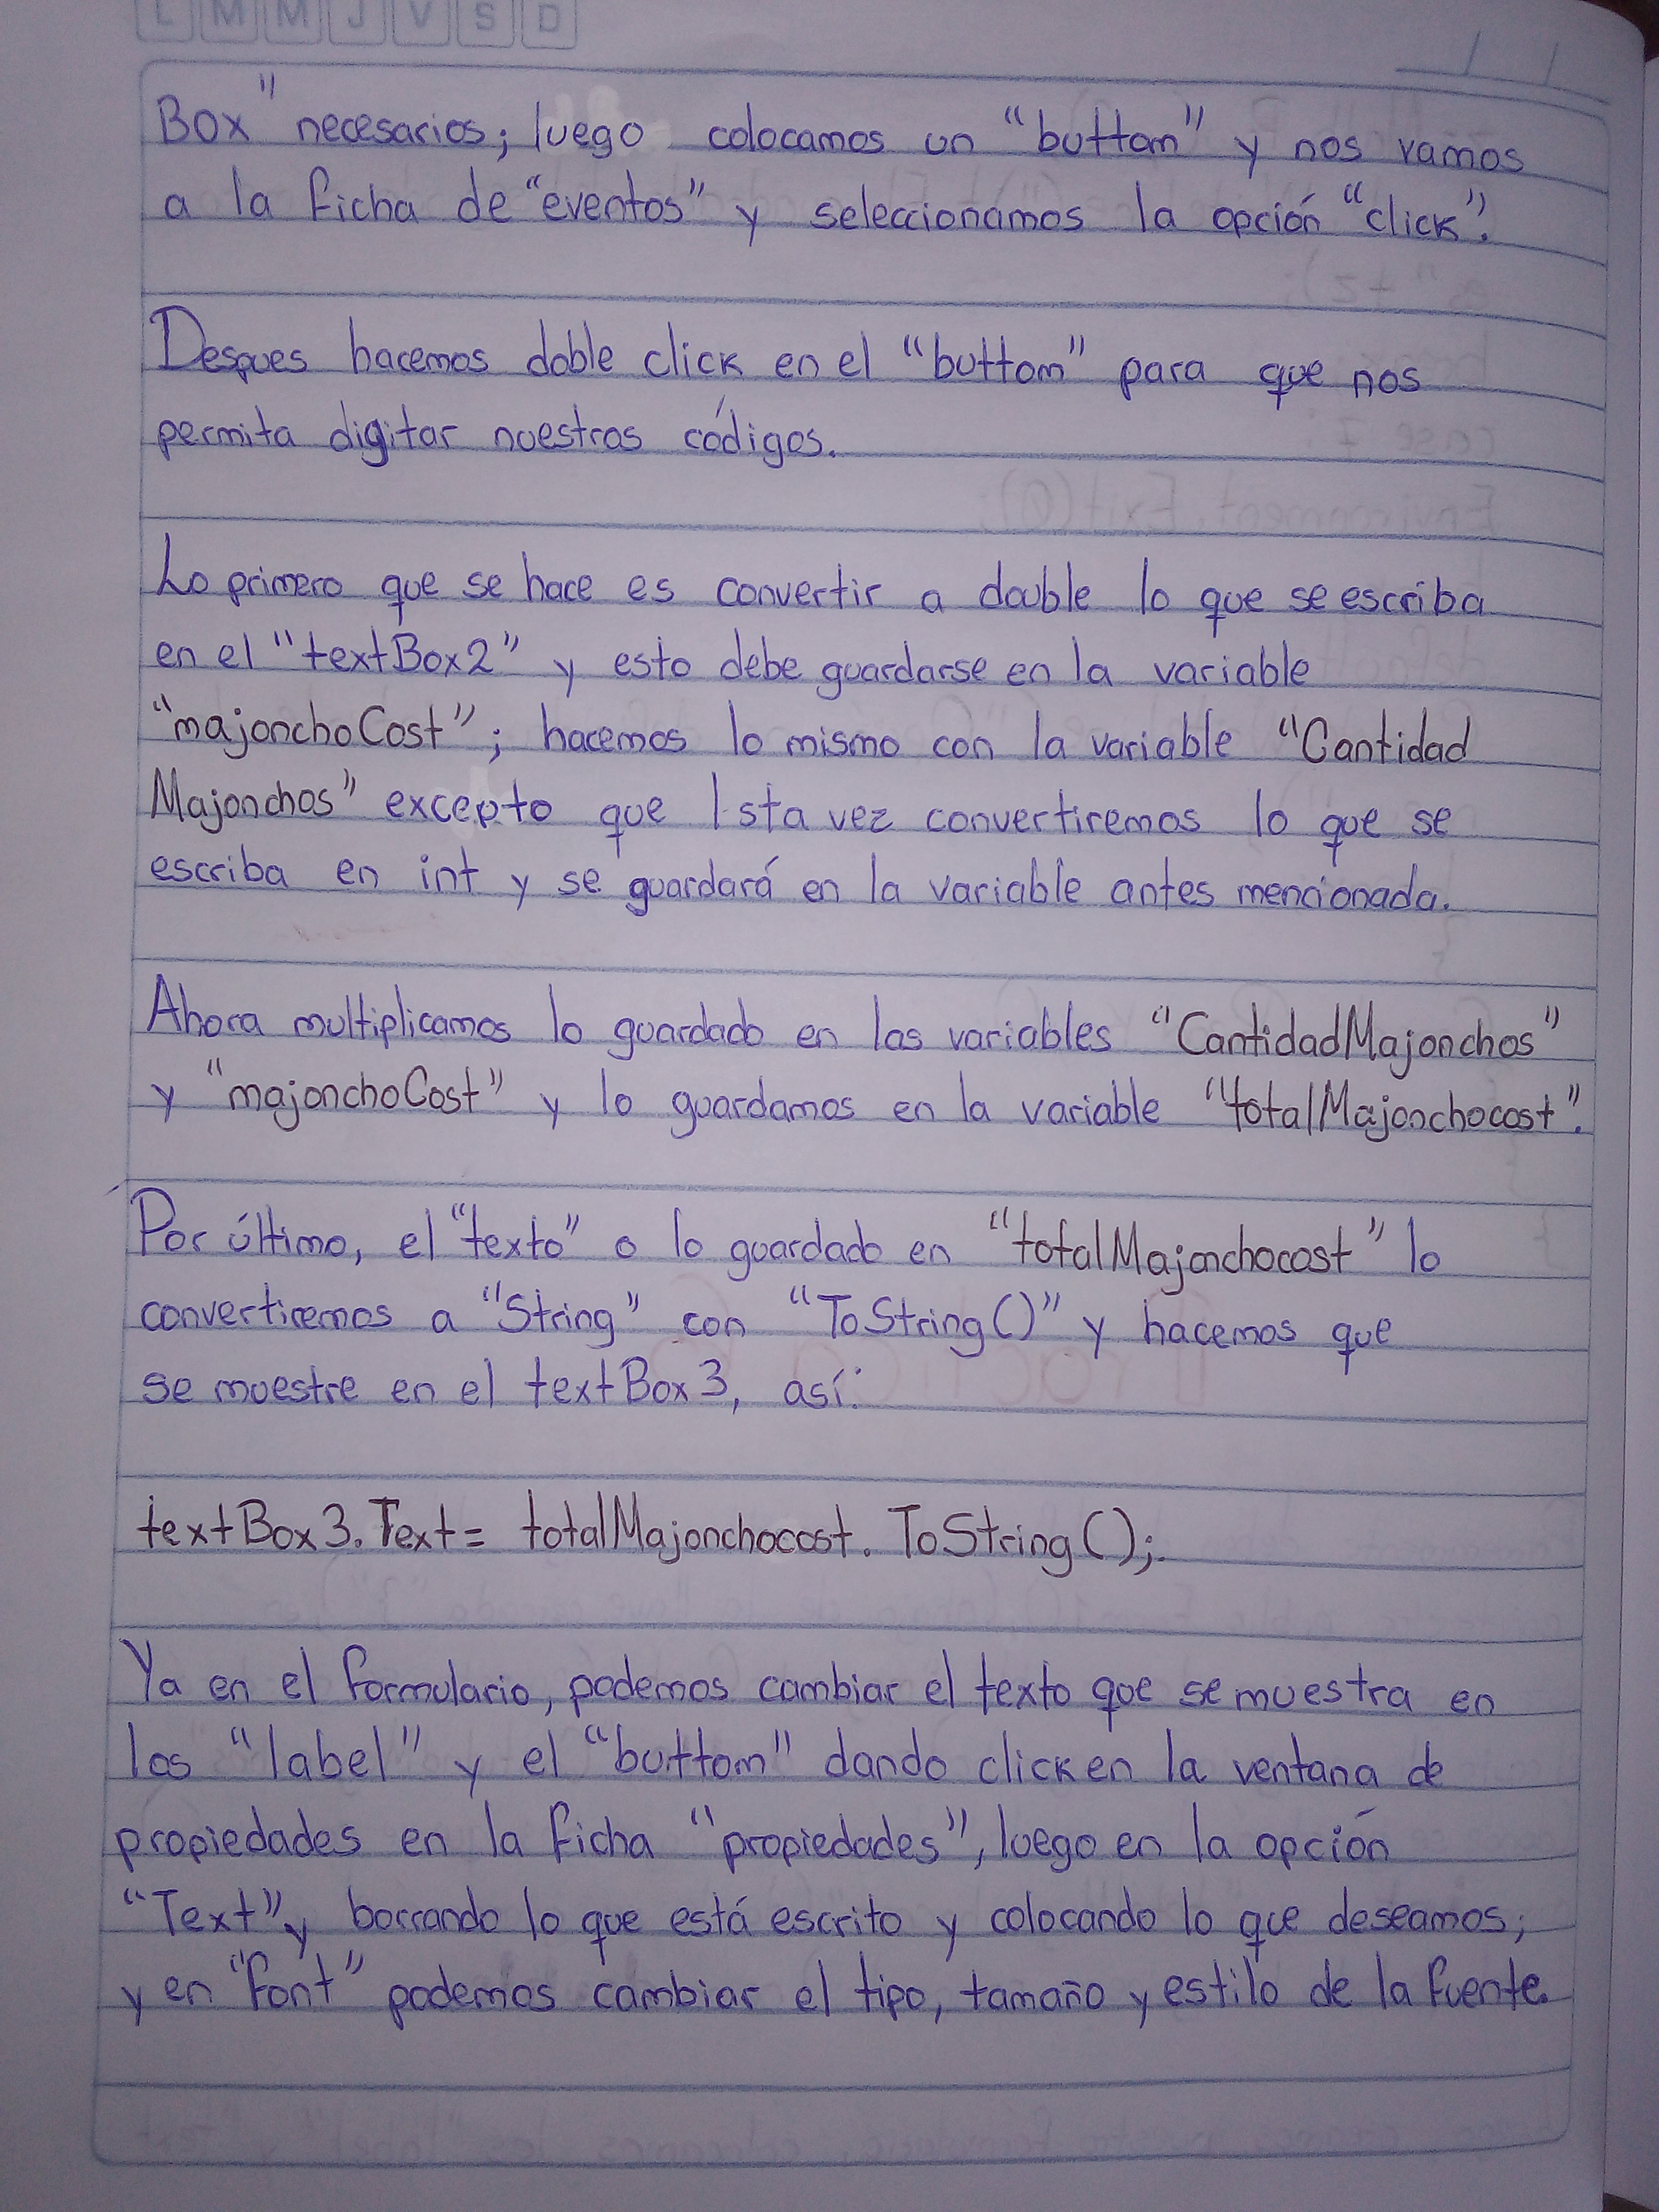 L M M J V S D
Box" necesarios; luego colocamos un "buttom" y nos vamos
a la ficha de "eventos" y seleccionamos la opción "click".
Despues hacemos doble click en el "buttom" para que nos
permita digitar nuestros códigos.
Lo primero que se hace es convertir a double lo que se escriba
en el "textBox2" y esto debe guardarse en la variable
"majonchoCost"; hacemos lo mismo con la variable "Cantidad
Majonchos" excepto que sta vez convertiremos lo que se
escriba en int y se guardará en la variable antes mencionada.
Ahora multiplicamos lo guardado en las variables "CantidadMajonchos"
y "majonchoCost" y lo guardamos en la variable "totalMajonchocost".
Por último, el "texto" o lo guardado en "totalMajonchocost" lo
convertiremos a "String" con "ToString()" y hacemos que
se muestre en el textBox3, así:
textBox3.Text= totalMajonchocost.ToString();
Ya en el formulario, podemos cambiar el texto que se muestra en
los "label" y el "buttom" dando click en la ventana de
propiedades en la ficha "propiedades", luego en la opción
"Text" y borrando lo que está escrito y colocando lo que deseamos;
y en "Font" podemos cambiar el tipo, tamaño y estilo de la fuente.